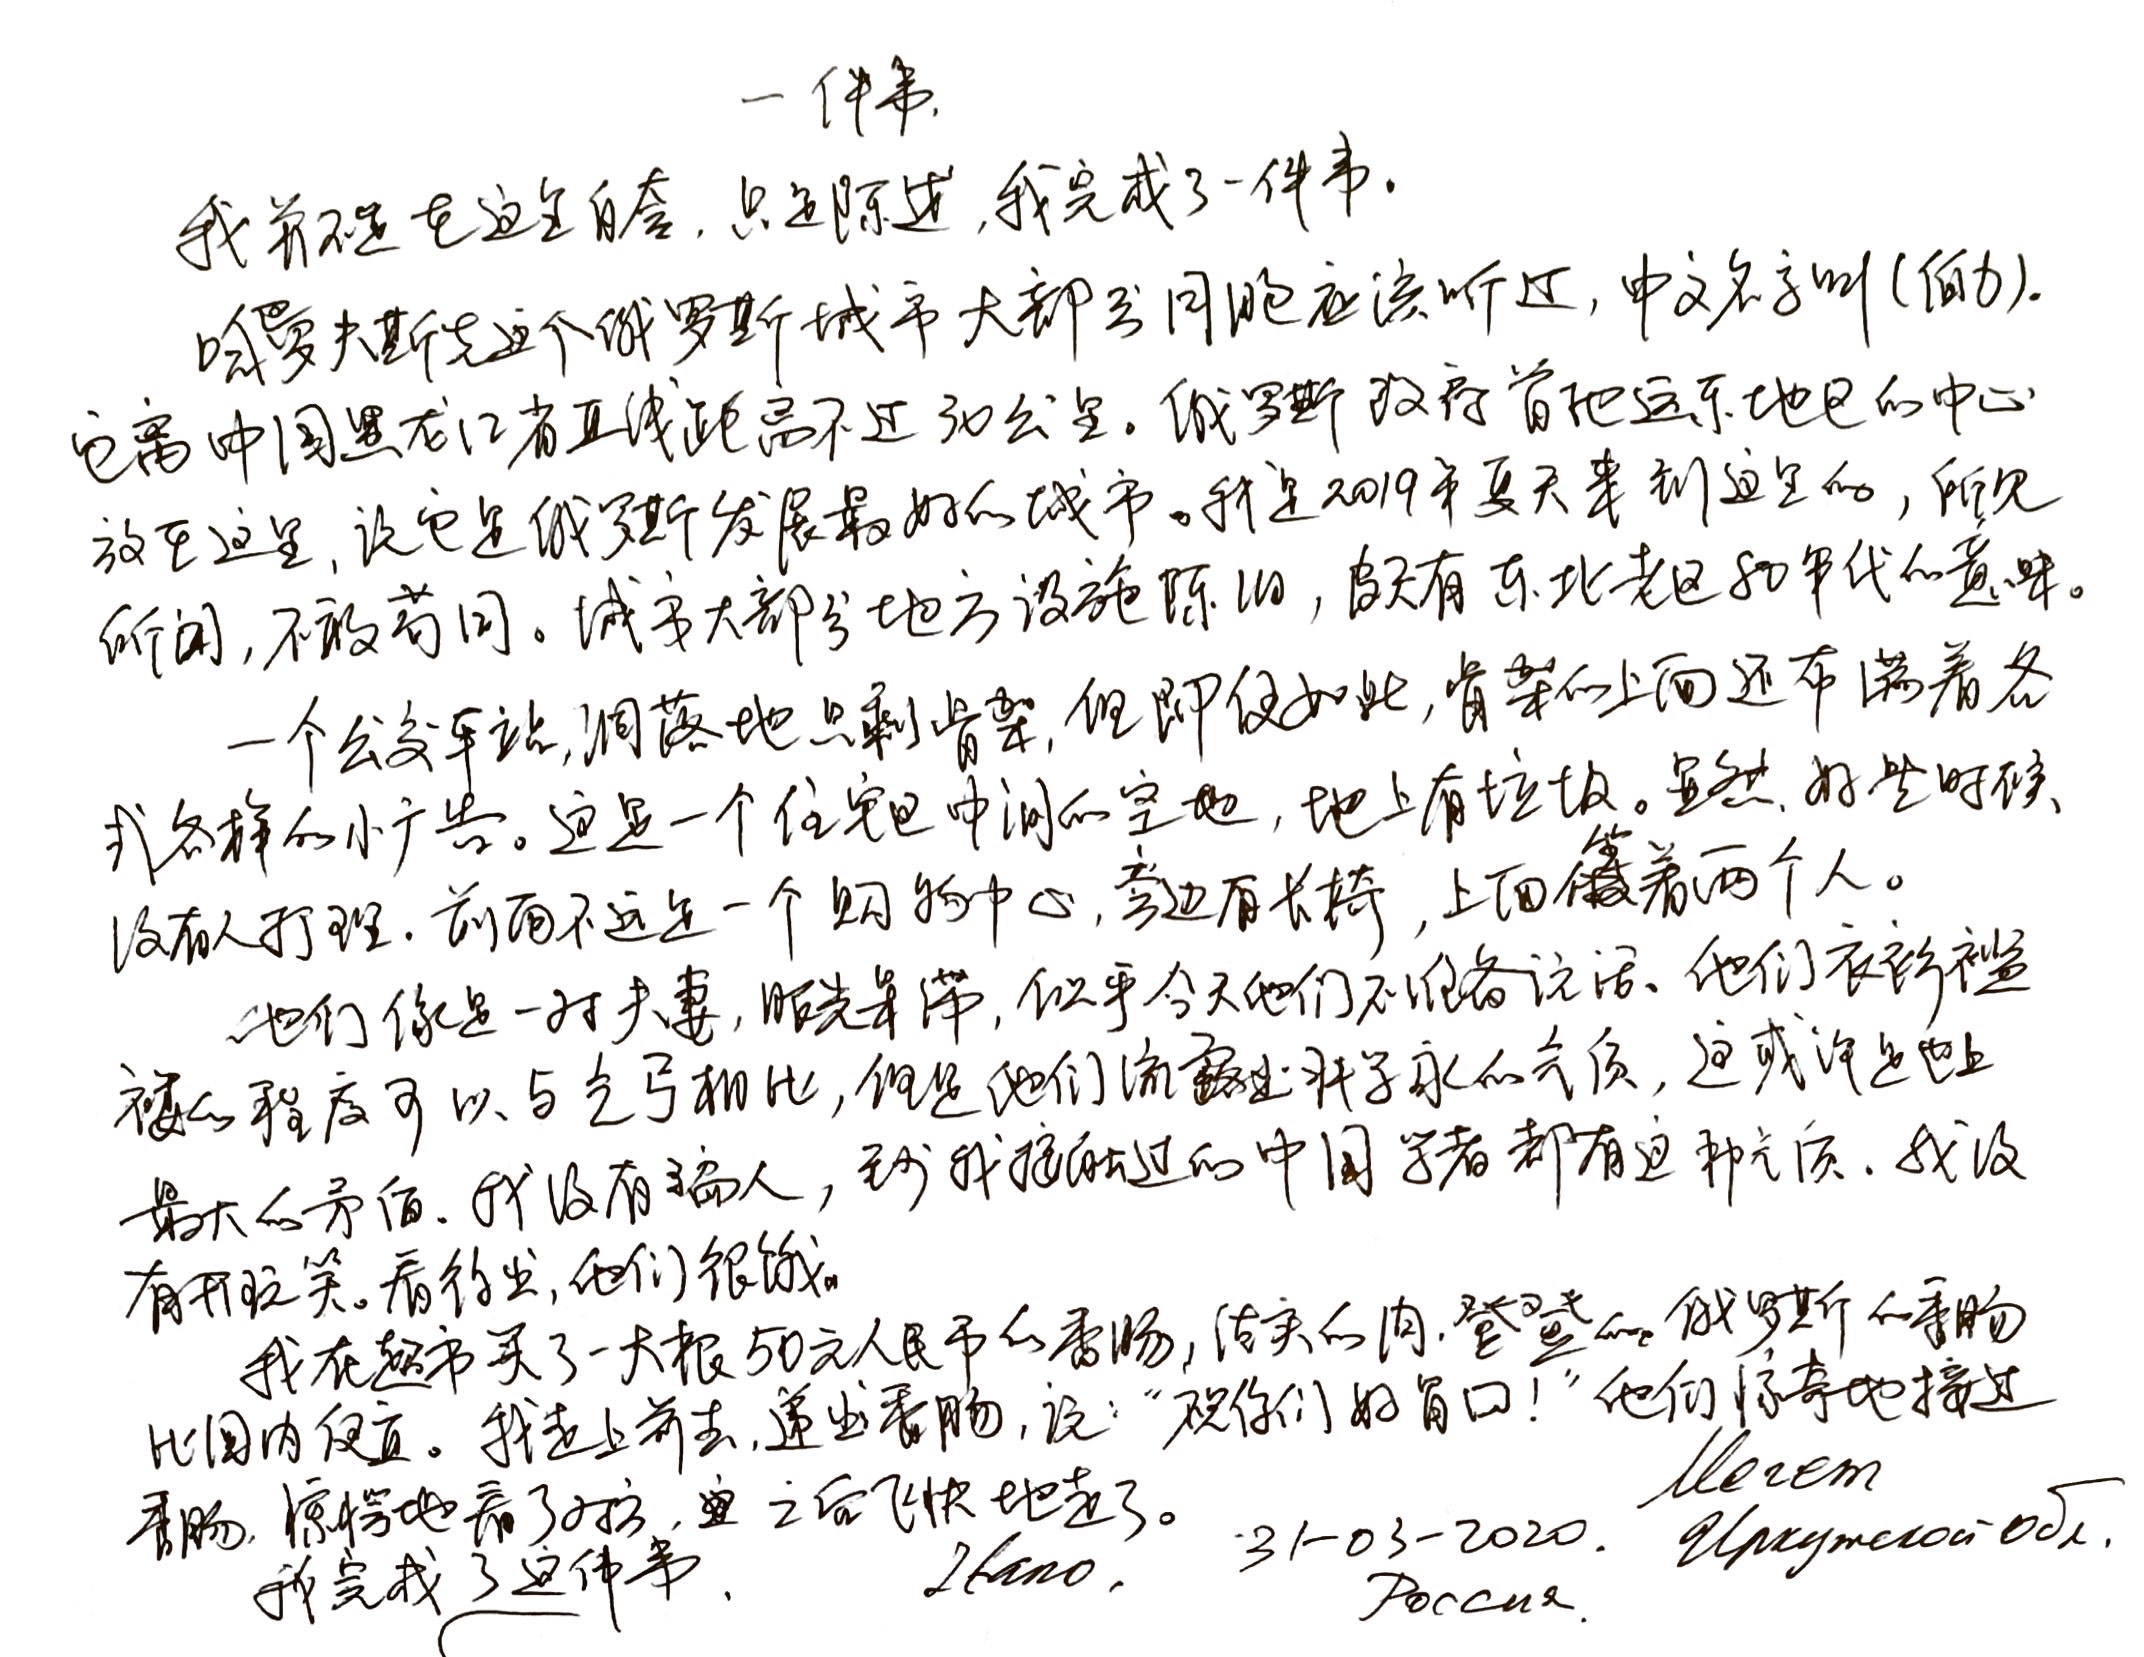 一件事.
我并不是在这里自夸.只是陈述,我完成了一件事.
哈巴罗夫斯克这个俄罗斯城市大部分同胞应该听过,中文名字叫(伯力).
它离中国黑龙江省直线距离不过30公里。俄罗斯政府曾把远东地区的中心
放在这里,说它是俄罗斯发展最好的城市。我是2019年夏天来到这里的,所见
所闻,不敢苟同。城市大部分地方设施陈旧,颇有东北老区80年代的意味。
一个公交车站,凋落地只剩骨架,但即使如此,骨架的上面还布满着各
式各样的小广告。这是一个住宅区中间的空地,地上有垃圾。显然、好些时候、
没有人打理.前面不远是一个购物中心,旁边有长椅,上面坐着两个人。
他们像是一对夫妻,眼光呆滞,似乎今天他们不准备说话、他们衣衫褴
褛的程度可以与乞丐相比,但是他们流露出科学家的气质,这或许是世上
最大的矛盾.我没有骗人,至少我接触过的中国学者都有这种气质.我没
有开玩笑。看得出,他们很饿。
我在超市买了一大根50元人民币的香肠,结实的肉.登登的。俄罗斯的香肠
比国内便宜。我走上前去,递出香肠,说:“祝你们好胃口!”他们惊奇地接过
香肠,惊愕地看了对方,之后飞快地走了。
我完成了这件事.
31-03-2020.
Россия.
Мегет
Иркутской обл.